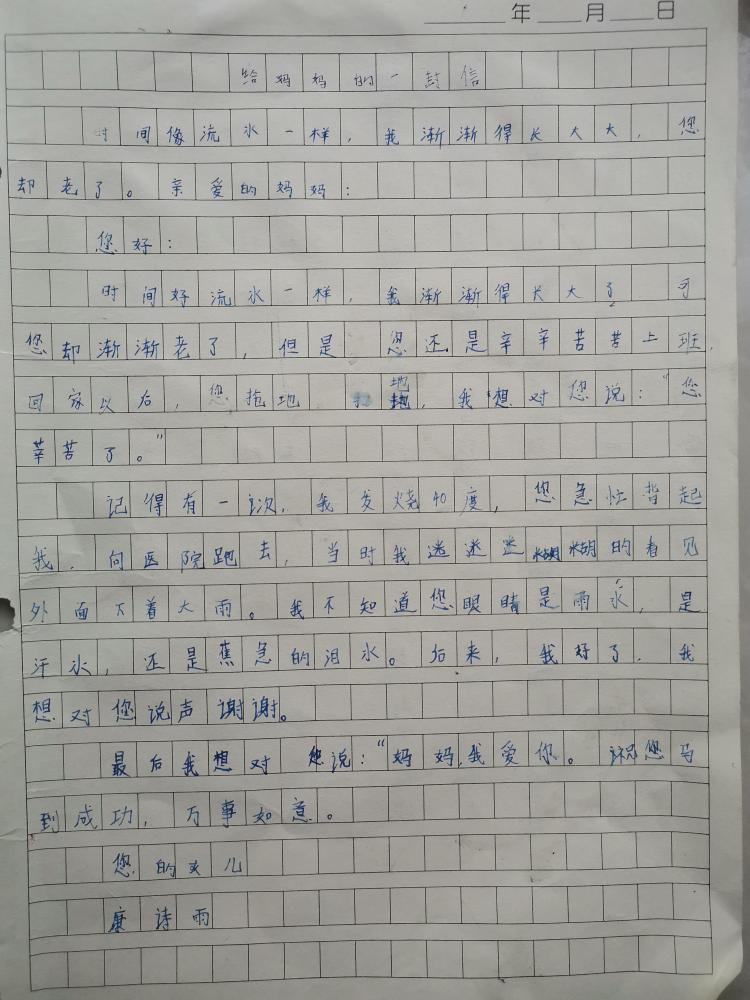 年 月 日
给妈妈的一封信
时间像流水一样，我渐渐得长大大，您
却老了。亲爱的妈妈：
您好：
时间好流水一样，我渐渐得长大了 可
您却渐渐老了，但是 您还是辛辛苦苦上班，
回家以后，您拖地 扫地，我想对您说：“您
辛苦了。”
记得有一次，我发烧40度，您急忙背起
我，向医院跑去，当时我迷迷迷糊糊的看见
外面下着大雨。我不知道您眼睛是雨水，是
汗水，还是蕉急的泪水。后来，我好了，我
想对您说声谢谢。
最后我想对您说：“妈妈，我爱你。祝您马
到成功，万事如意。
您的女儿
康诗雨